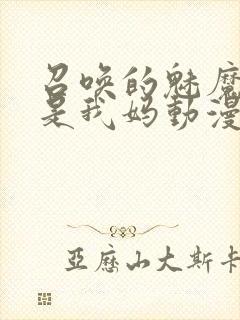 召唤的魅魔
是我妈動漫
亞歷山大斯卡